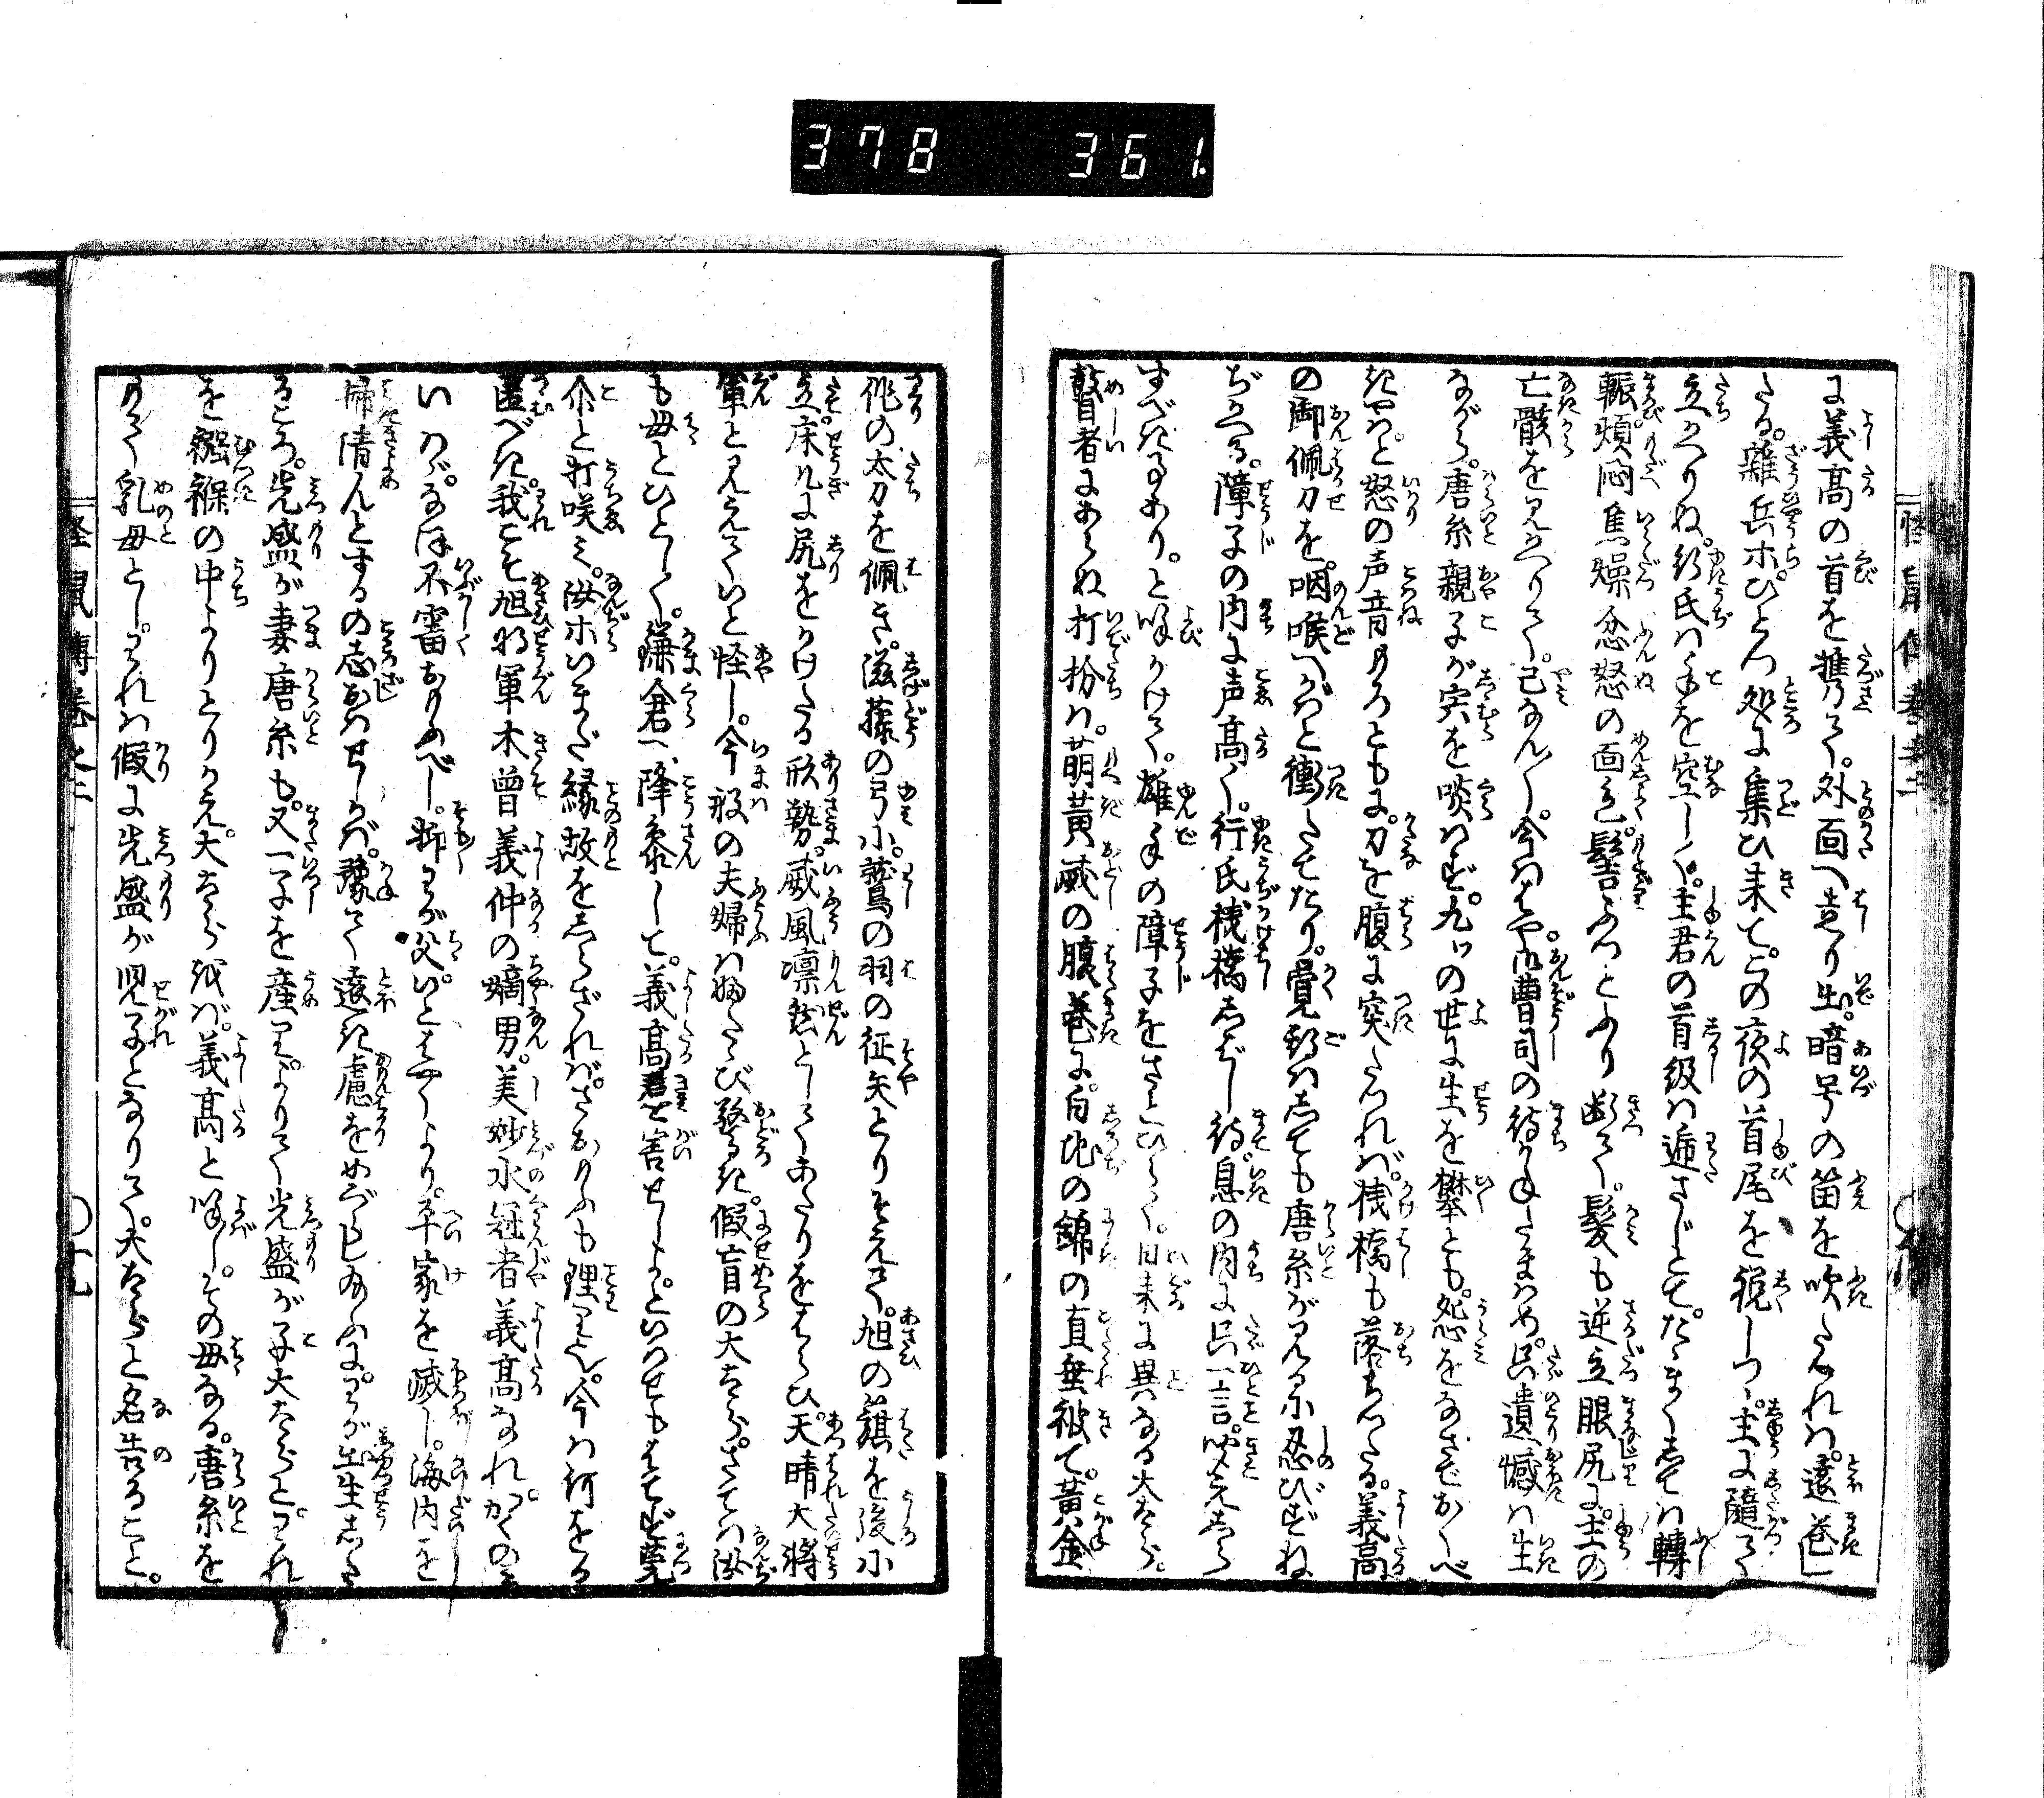 378 361
に義高の首を携て。外面へ走り出。暗号の笛を吹たれば。遠巻し
たる。雑兵ホひとつ処に集ひ来て。この夜の首尾を祝しつゝ。主に随て
立かへりぬ。行氏は手を空しく。主君の首級は逓さじとて。たゞまくしては轉
輾煩悶焦燥忿怒の面色。髻ふつとふり断て。髪も逆立眼尻に。主の
亡骸を見かへりて。已なん〳〵。今はゝや。御曹司の待かねたまはめ。只遺憾は生
ながら。唐糸親子が宍を啖はず。九ツの世に生を攀とも。怨をなさでおくべ
きやはと怒の声音もろともに。刀を腹に突たつれば。桟橋も落ちつたる。義高
の御佩刀を。咽喉へがはと衝たてたり。覚期はしても唐糸が見るに忍びずね
ぢかへる。障子の内に声高く。行氏桟橋しばし待。息の内に只一言。聞えしら
すべき事あり。と呼かけて。雄手の障子をさとひらく。日来に異なる大太郎。
瞽者にあらぬ打扮は。萌黄威の腹巻に。白地の錦の直垂被て。黄金
作の太刀を佩き。滋藤の弓に。鷲の羽の征矢とりそえて。旭の籏を後に
立。床几に尻をかけたる形勢。威風凛然としてあたりをはらひ。天晴大将
軍と見えていと怪し。今般の夫婦は再たび驚き。假盲の大太郎。さては汝
も母とひとしく。鎌倉へ降参して。義高君を害せしよ。といはせもはてず莞
尓と打咲ミ。汝ホいまだ縁故をしらざれば。さおもふも理りぞ。今は何をか
匿べき。我こそ旭将軍木曽義仲の嫡男。美妙水冠者義高なれ。かくのミ
いはゞ。なほ不審おもふべし。抑わが父。いとはやくより。平家を滅し。海内を
掃清んとするの志おはせしかば。豫て遠き慮をめぐらし給ふに。わが出生した
るころ。光盛が妻唐糸も。又一子を産り。よりて光盛が子大太郎と。われ
を襁褓の中よりとりかえ。大太郎をば。義高と呼し。その母なる。唐糸を
もて乳母とし。われは假に光盛が児子となりて。大太郎と名告ること。
怪鼠傳巻之三
〇十九